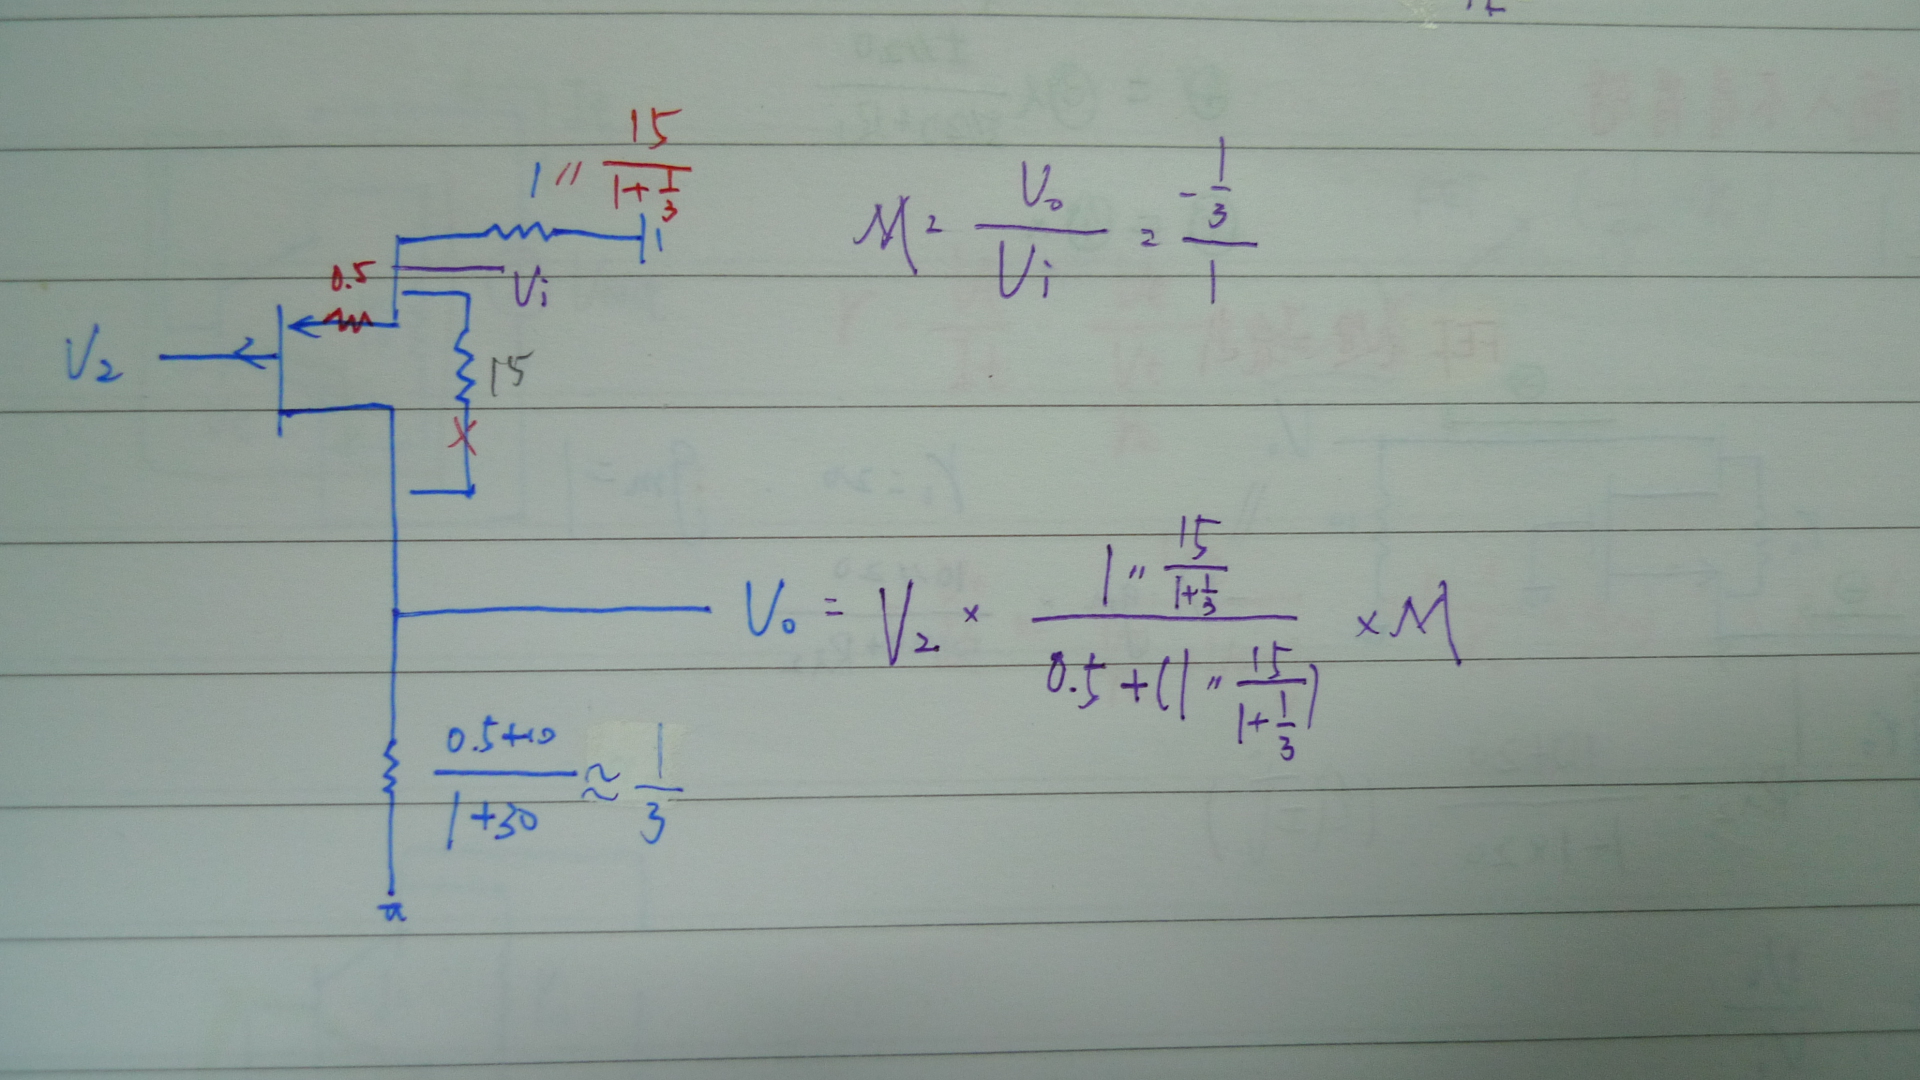 1 // 15/(1+1/3)
0.5
Vi
V2
15
M = Vo/Vi = (-1/3)/1
Vo = V2 × (1 // 15/(1+1/3))/(0.5+(1 // 15/(1+1/3))) × M
(0.5+10)/(1+30) ≈ 1/3